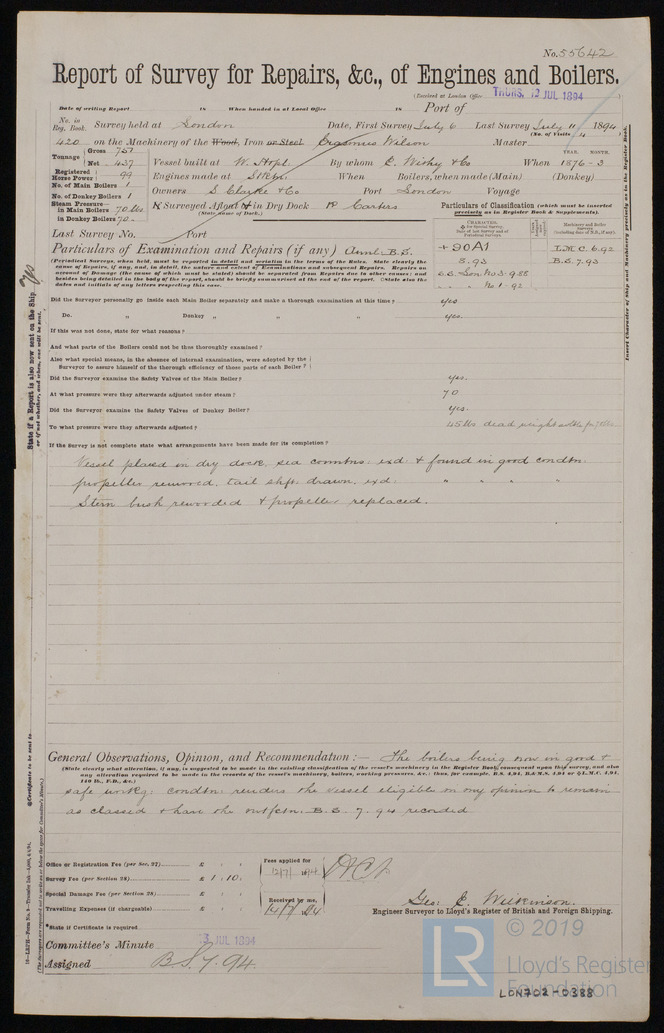 No. 55642
Report of Survey for Repairs, &c., of Engines and Boilers.
(Received at London Office THURS. 12 JUL 1894 )
Date of writing Report 18 When handed in at Local Office 18 Port of
No. in Reg. Book. Survey held at London Date, First Survey July 6 Last Survey July 11 1894
(No. of Visits 4 )
420 on the Machinery of the Wood, Iron or Steel Erasmus Wilson Master
Tonnage Gross 757 Net 437
Vessel built at W. Htpl. By whom When 1876-3
YEAR. MONTH.
Registered Horse Power 99
Engines made at When Boilers, when made (Main) (Donkey)
No. of Main Boilers 1
No. of Donkey Boilers 1
Owners S. Clarke & Co Port London Voyage
Steam Pressure in Main Boilers 70 lbs
in Donkey Boilers 70
If Surveyed Afloat or in Dry Dock
(State name of Dock.)
Particulars of Classification (which must be inserted precisely as in Register Book & Supplements).
Last Survey No. Port
Particulars of Examination and Repairs (if any) Annl. B.S.
+ 90A1 L.M.C. 6.92
8.93 B.S. 7.93
S.S. Lon. No 3-9.88
" " No 1-92
(Periodical Surveys, when held, must be reported in detail and seriatim in the terms of the Rules. State clearly the
cause of Repairs, if any, and, in detail, the nature and extent of Examinations and subsequent Repairs. Repairs on
account of Damage (the cause of which must be stated) should be separated from Repairs due to other causes; and
besides being detailed in the body of the report, should be briefly summarised at the end of the report. State also the
dates and initials of any letters respecting this case.
Did the Surveyor personally go inside each Main Boiler separately and make a thorough examination at this time? yes
Do. " Donkey " " " yes.
If this was not done, state for what reasons?
And what parts of the Boilers could not be thus thoroughly examined?
Also what special means, in the absence of internal examination, were adopted by the
Surveyor to assure himself of the thorough efficiency of those parts of each Boiler?
Did the Surveyor examine the Safety Valves of the Main Boiler? yes.
At what pressure were they afterwards adjusted under steam? 70
Did the Surveyor examine the Safety Valves of Donkey Boiler? yes.
To what pressure were they afterwards adjusted? 45 lbs dead weight
If the Survey is not complete state what arrangements have been made for its completion?
Vessel placed in dry dock, sea conntns: exd: & found in good condtn:
propeller removed, tail shft: drawn, exd: " " " "
Stern bush rewooded & propeller replaced.
General Observations, Opinion, and Recommendation:— The boilers being now in good &
(State clearly what alteration, if any, is suggested to be made in the existing classification of the vessel's machinery in the Register Book, consequent upon this survey, and also
any alteration required to be made in the records of the vessel's machinery, boilers, working pressures, &c.: thus, for example, B.S. 4.94, B.&M.S. 4.94 or L.M.C. 4.94,
140 lb., F.D., &c.)
safe workg: condtn: renders the vessel eligible in my opinion to remain
as classed & have the B.S. 7.94 recorded
Office or Registration Fee (per Sec. 27) £ : :
Survey Fee (per Section 28) £ 1 : 10 :
Special Damage Fee (per Section 28) £ : :
Travelling Expenses (if chargeable) £ : :
Fees applied for
12/7/ 1894
Received by me,
14/7/94
Geo: E. Wilkinson.
Engineer Surveyor to Lloyd's Register of British and Foreign Shipping.
*State if Certificate is required
Committee's Minute 13 JUL 1894
Assigned B.S. 7.94.
© 2019
LR
Lloyd's Register
Foundation
LON702-0388
State if a Report is also now sent on the Ship,
or if not whether, and when, one will be sent.
Insert Character of Ship and Machinery precisely as in the Register Book.